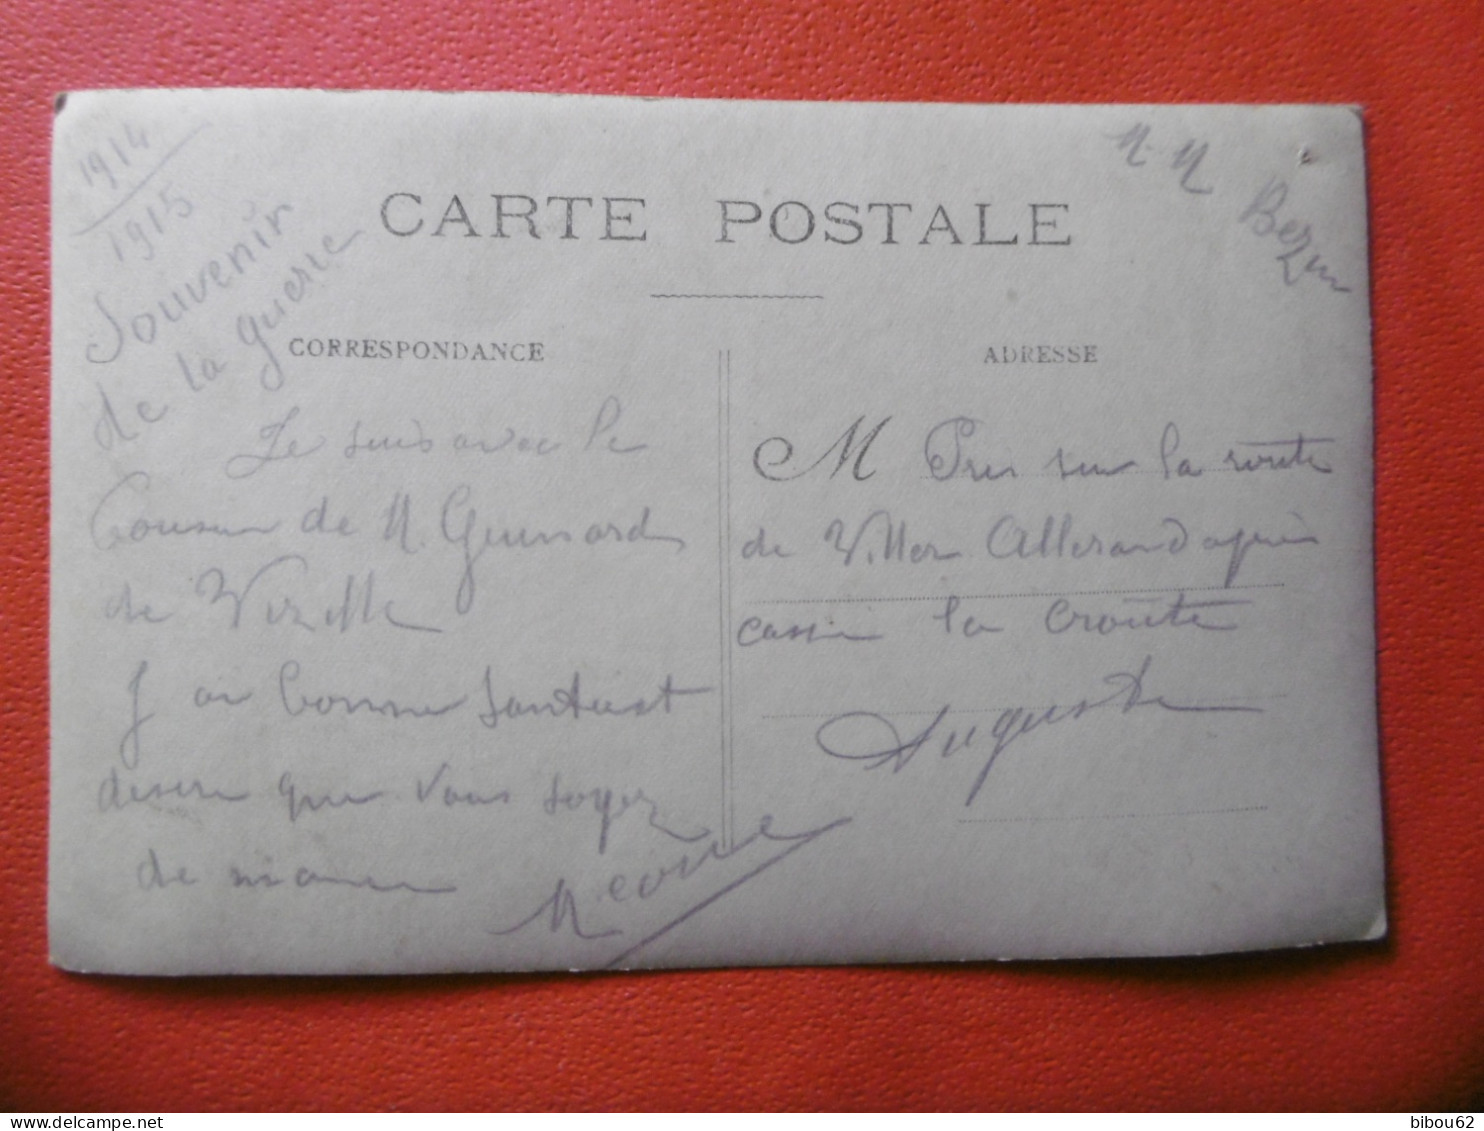 1914
1915
Souvenir
de la guerre
M. M Bezin
CARTE POSTALE
CORRESPONDANCE
ADRESSE
Je suis avec le
Cousin de M. Guinard
de
J ai bonne Santé est
desire que vous soyez
de même
M Pris sur la route
de Viller Allerand après
cassé la croute
Auguste
bibou62